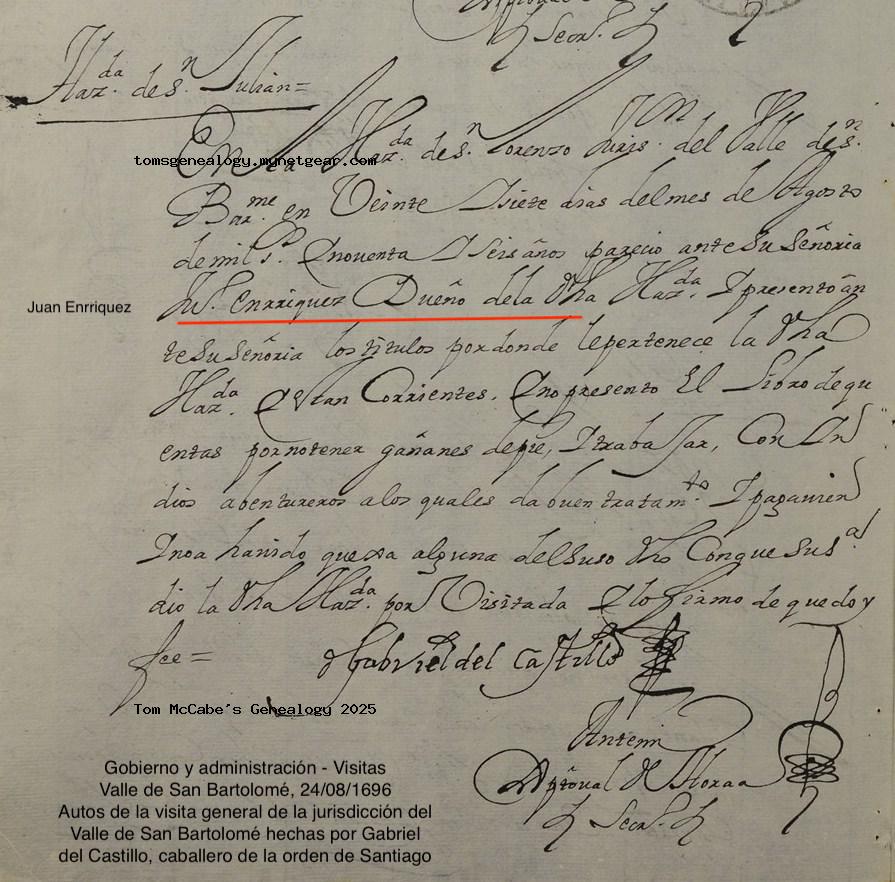 Secr.º
Haz.da de s.n Julian=
En la Haz.da de s.n Lorenzo Juris.on del Valle de s.n
tomsgenealogy.mynetgear.com
Bar.me en Veinte Isiete dias del mes de Agosto
de mil s.s Inoventa Iseis años parecio ante su señoria
Ju.º Enrriquez Dueño dela dha Haz.da, I presento an
Juan Enrriquez
te su señoria los titulos por donde le pertenece la dha
Haz.da estan Corrientes, Ino presento El Libro de qu
entas por no tener gañanes de pie, I trabaJar, Con In
dios abentureros a los quales da buen tratam.to I pagamien
I no a havido quexa alguna del suso dho Con que su s.a
dio la dha Haz.da por Visitada I lo firmo de que doy
fee= Gabriel del Castillo
Tom McCabe's Genealogy 2025
Antemi
Xptoval de
Secr.º
Gobierno y administración - Visitas
Valle de San Bartolomé, 24/08/1696
Autos de la visita general de la jurisdicción del
Valle de San Bartolomé hechas por Gabriel
del Castillo, caballero de la orden de Santiago